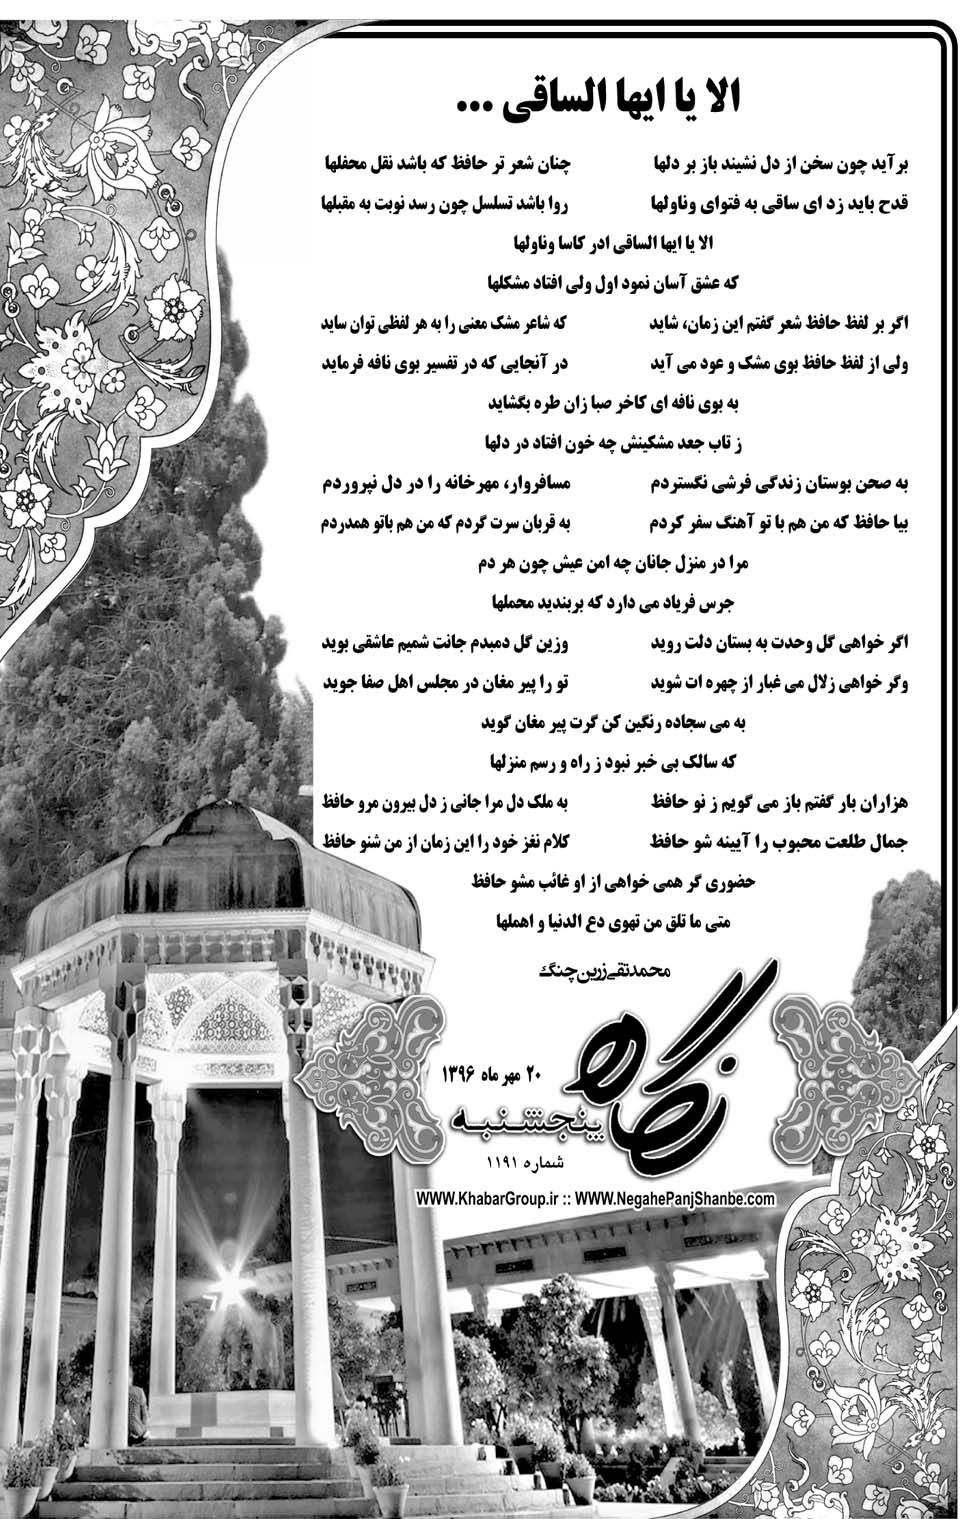 الا یا ایها الساقی ...
برآید چون سخن از دل نشیند باز بر دلها چنان شعر تر حافظ که باشد نقل محفلها
قدح باید زد ای ساقی به فتوای وناولها روا باشد تسلسل چون رسد نوبت به مقبلها
الا یا ایها الساقی ادر کاسا وناولها
که عشق آسان نمود اول ولی افتاد مشکلها
اگر بر لفظ حافظ شعر گفتم این زمان، شاید که شاعر مشک معنی را به هر لفظی توان ساید
ولی از لفظ حافظ بوی مشک و عود می آید در آنجایی که در تفسیر بوی نافه فرماید
به بوی نافه ای کاخر صبا زان طره بگشاید
ز تاب جعد مشکینش چه خون افتاد در دلها
به صحن بوستان زندگی فرشی نگستردم مسافروار، مهرخانه را در دل نپروردم
بیا حافظ که من هم با تو آهنگ سفر کردم به قربان سرت گردم که من هم باتو همدردم
مرا در منزل جانان چه امن عیش چون هر دم
جرس فریاد می دارد که بربندید محملها
اگر خواهی گل وحدت به بستان دلت روید وزین گل دمبدم جانت شمیم عاشقی بوید
وگر خواهی زلال می غبار از چهره ات شوید تو را پیر مغان در مجلس اهل صفا جوید
به می سجاده رنگین کن گرت پیر مغان گوید
که سالک بی خبر نبود ز راه و رسم منزلها
هزاران بار گفتم باز می گویم ز نو حافظ به ملک دل مرا جانی ز دل بیرون مرو حافظ
جمال طلعت محبوب را آیینه شو حافظ کلام نغز خود را این زمان از من شنو حافظ
حضوری گر همی خواهی از او غائب مشو حافظ
متی ما تلق من تهوی دع الدنیا و اهملها
محمدتقی زرین چنگ
نگاه
۲۰ مهر ماه ۱۳۹۶
پنجشنبه
شماره ۱۱۹۱
WWW.KhabarGroup.ir :: WWW.NegahePanjShanbe.com